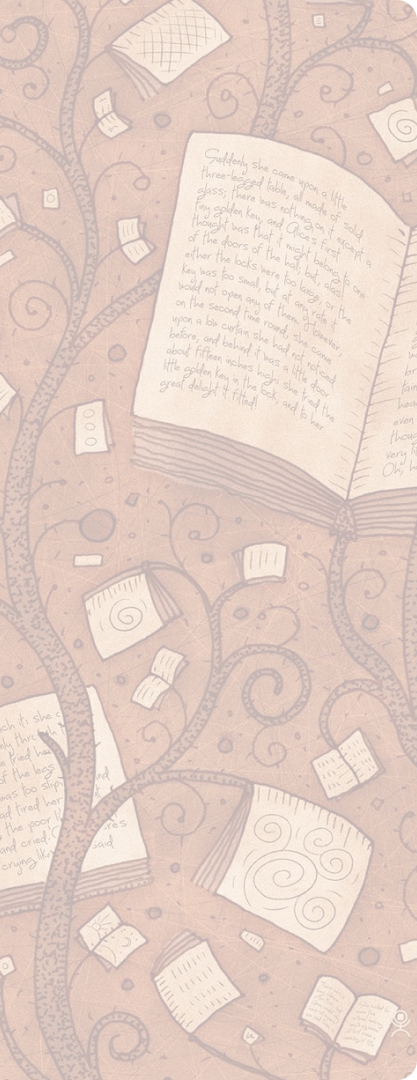 Suddenly she came upon a little
three-legged table, all made of solid
glass; there was nothing on it except a
tiny golden key, and Alice's first
thought was that it might belong to one
of the doors of the hall; but, alas!
either the locks were too large, or the
key was too small, but at any rate it
would not open any of them. However,
on the second time round, she came
upon a low curtain she had not noticed
before, and behind it was a little door
about fifteen inches high; she tried the
little golden key in the lock, and to her
great delight it fitted!
br
hea
even
thou
very li
Oh, h
ach it: she c
only thr
tried he
of the legs
was too slip
ad tired her
the poor l
and cried.
crying lik said